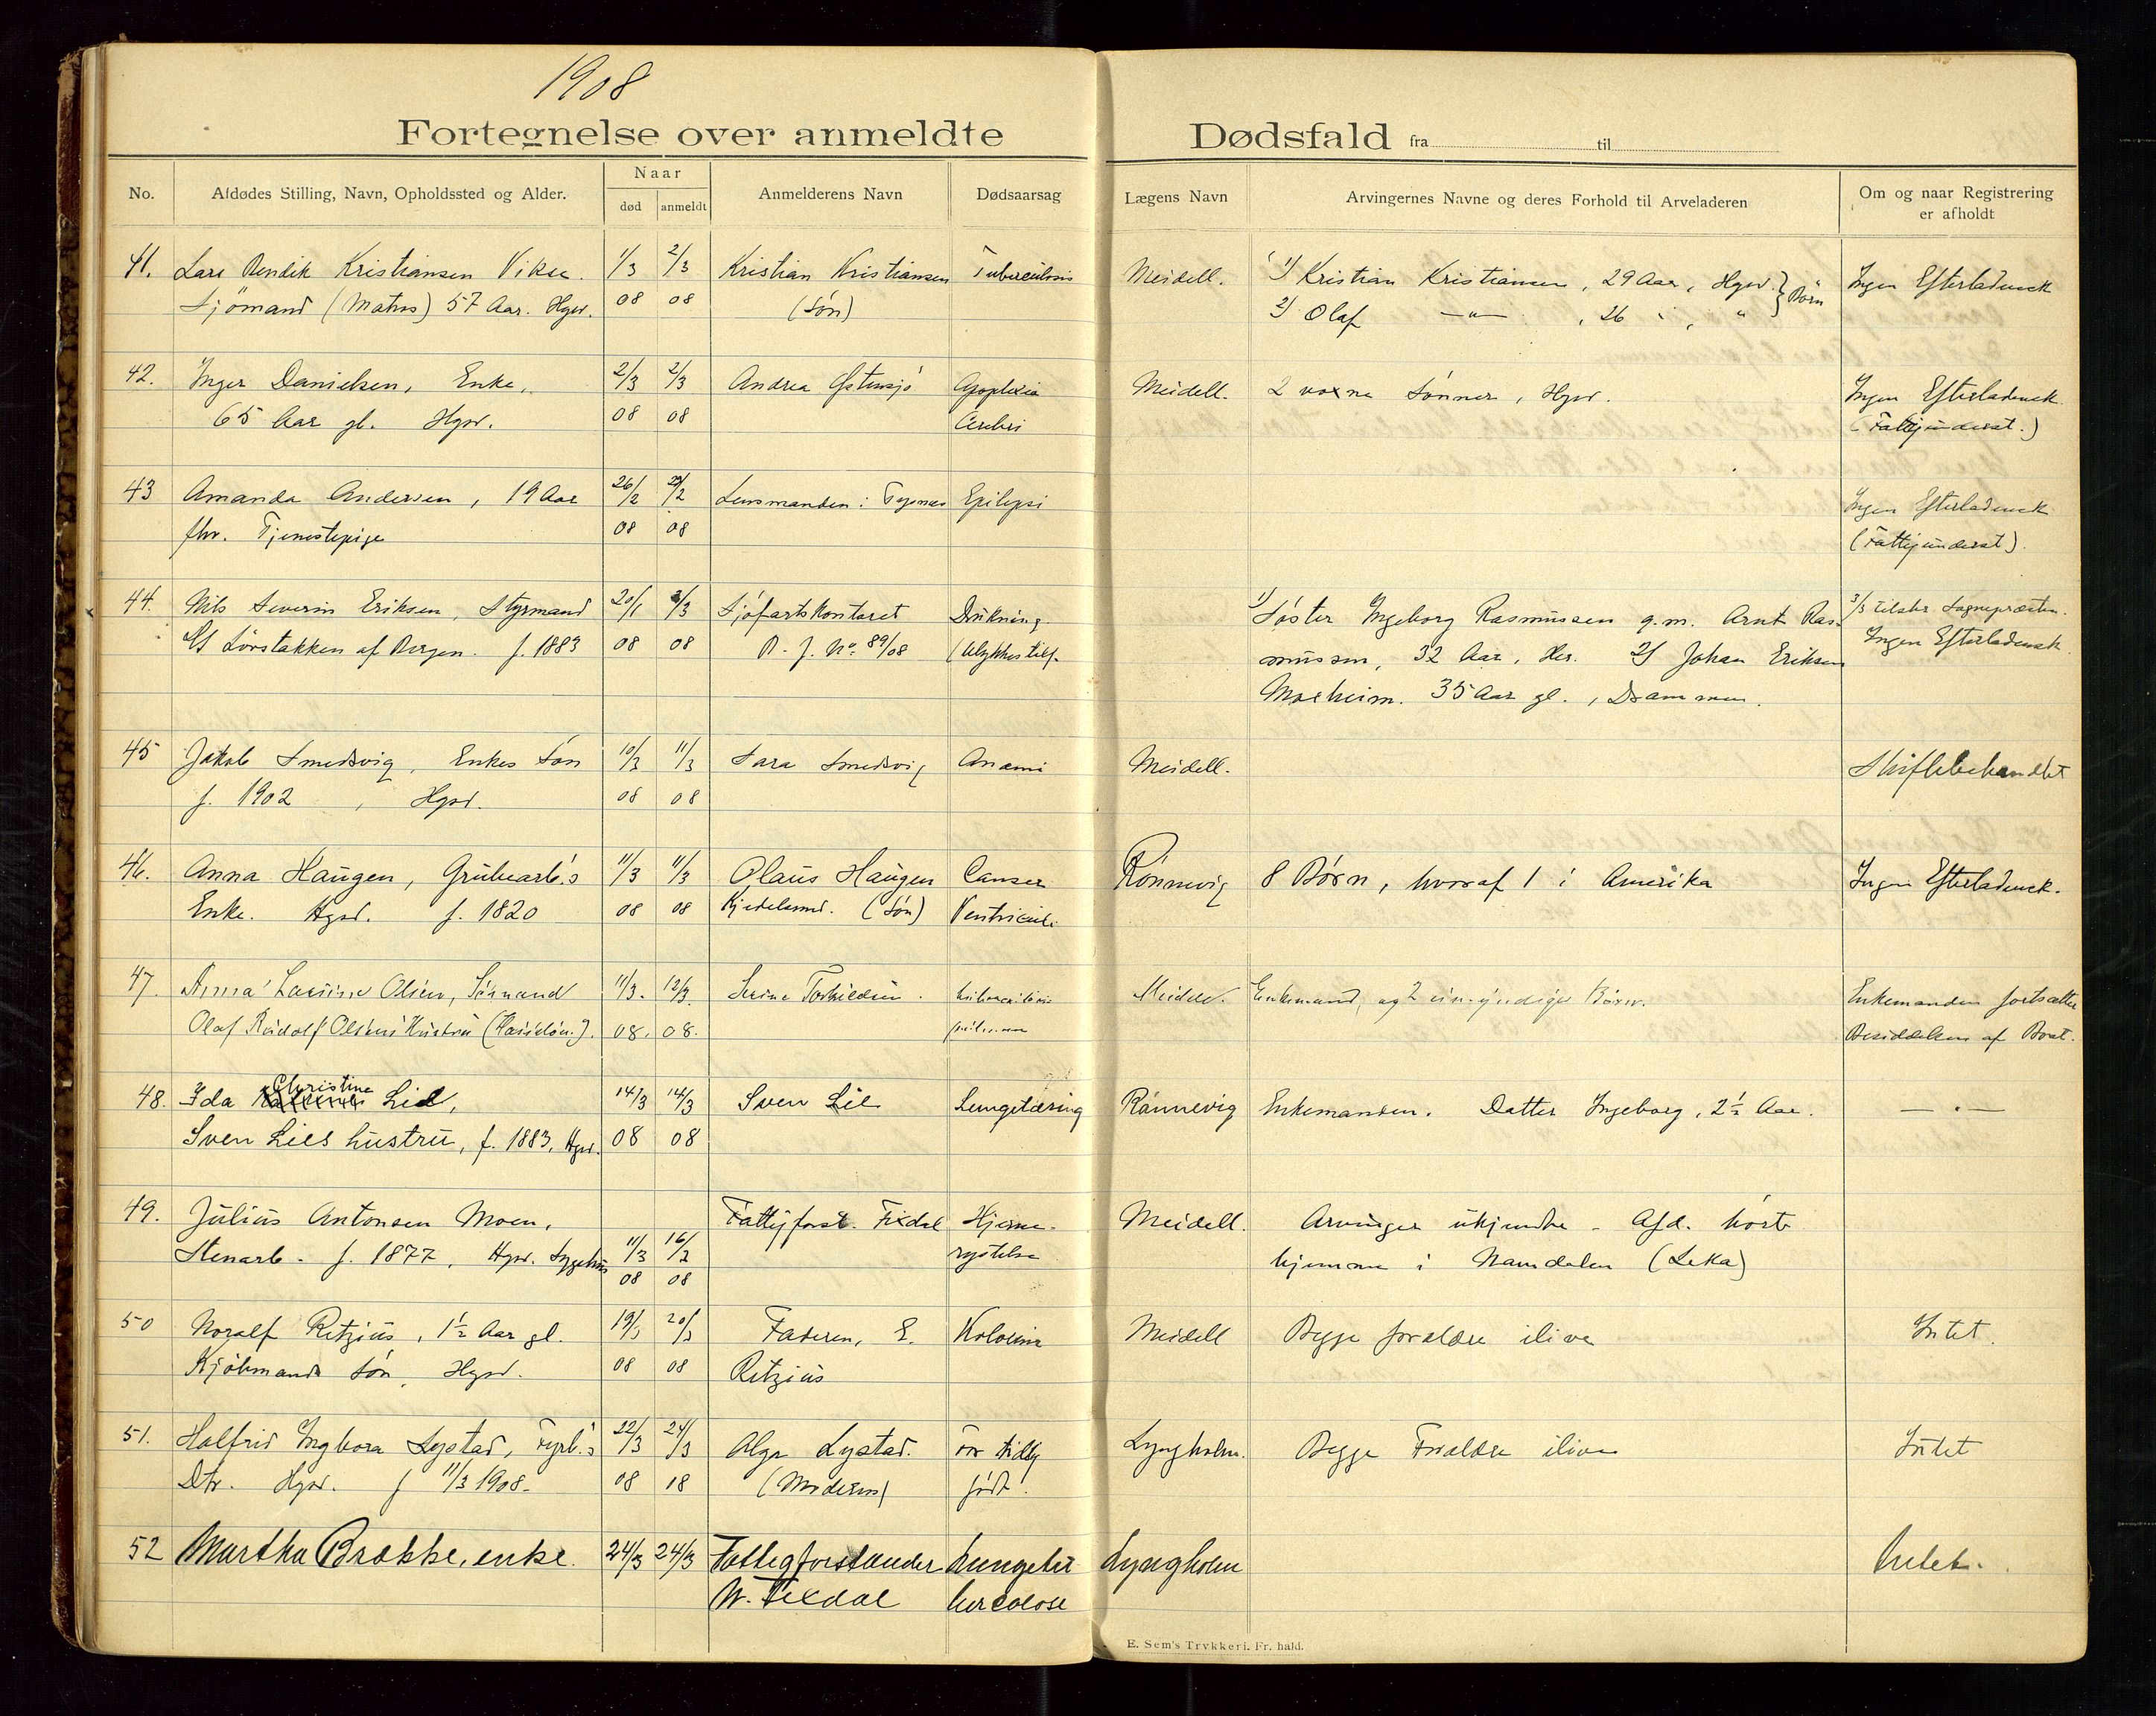 1908
Fortegnelse over anmeldte Dødsfald fra til
No.
Afdødes Stilling, Navn, Opholdssted og Alder.
Naar
død anmeldt
Anmelderens Navn
Dødsaarsag
Lægens Navn
Arvingernes Navne og deres Forhold til Arveladeren
Om og naar Registrering
er afholdt
41. Lars Bendik Kristiansen Vikse. 1/3 2/3 Kristian Kristiansen Tuberculosis Meidell. 1) Kristian Kristiansen, 29 Aar, Hgsd. } Børn Ingen Efterladensk
Sjømand (Matros) 57 Aar. Hgsd. 08 08 (Søn) 2) Olaf —"— , 26 " , "
42. Inger Danielsen, Enke, 2/3 2/3 Andrea Østensjø Apoplexia Meidell. 2 voxne Sønner, Hgsd. Ingen Efterladensk
65 Aar gl. Hgsd. 08 08 Cerebri (Fattigunderst.)
43 Amanda Andersen, 19 Aar 26/2 29/2 Lensmanden i Tysnes Epilepsi Ingen Efterladensk
fhv. Tjenestepige 08 08 (Fattigunderst).
44. Nils Severin Eriksen, Styrmand 20/1 3/3 Sjøfartskontoret Drukning 1) Søster Ingeborg Rasmussen g.m. Arnt Ras- 3/3 tilskr Sognepræsten.
S/S Løvstakken af Bergen. f. 1883 08 08 B. J. No. 89/08 (Ulykkestilf. mussen, 32 Aar, Her. 2) Johan Eriksen Ingen Efterladensk.
35 Aar gl., Drammen.
45 Jakob Smedsvig, Enkes Søn 10/3 11/3 Sara Smedsvig Anæmi Meidell. Skiftebehandlet
f. 1902, Hgsd. 08 08
46. Anna Haugen, Grubearb.'s 11/3 11/3 Olaus Haugen Canser Rønnevig 8 Børn, hvoraf 1 i Amerika Ingen Efterladensk.
Enke. Hgsd. f. 1820 08 08 Kjedelsmed. (Søn) Ventriculi.
47. Anna Olsen, Sømand 11/3. 12/3. Serine Torkildsen. Meidell. Enkemand, og 2 umyndige Børn. Enkemanden fortsætter
Olaf Rudolf Olsens Hustru 08. 08. Besiddelsen af Boet.
48. Ida Christine Lie, 14/3 14/3 Sven Lie Lungetæring Rønnevig Enkemanden. Datter Ingeborg, 2½ Aar. — " —
Sven Lies hustru, f. 1883, Hgsd. 08 08
49. Julius Antonsen Moen, Fattigforst. Fixdal Hjerne- Meidell. Arvinger ukjendte. Afd. hørte
Stenarb. f. 1877, Hgsd. Sygehus 11/3 16/3 rystelse hjemme i Namdalen (Leka)
08 08
50 Noralf Retzius, 1½ Aar gl. 19/3 20/3 Faderen, E. Kolerine Meidell Begge forældre ilive Intet.
Kjøbmands Søn, Hgsd. 08 08 Retzius
51. Halfrid Ingbora Lystad, Fyrb.'s 22/3 24/3 Alga Lystad. For tidlig Lyngholm. Begge Forældre ilive Intet
Dtr. Hgsd. f 11/3 1908. 08 08 (Moderen) født.
52 Martha Brække, enke. 24/3 24/3 Fattigforstander Lungetu- Lyngholm Intet.
N. Fixdal berculose
E. Sem's Trykkeri. Fr. hald.